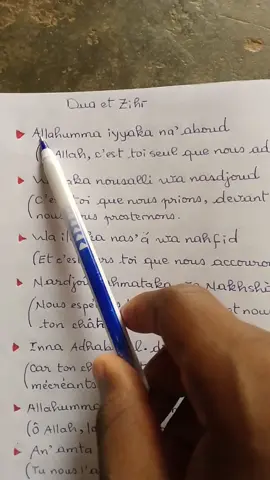 Dua et Zihr
Allahumma iyyaka na'aboud
(ô Allah, c'est toi seul que nous ad
nousalli wa nasdjoud
(C'es toi que nous prions, devant
nous nous prosternons.
Wa il ka nas'á wa nahfid
(Et c'es ers toi que nous accouro
Nardjou ahmataka wa Nakhshi
(Nous espé et nou
ton chât
Inna Adhab l. d
(Car ton c
mécréants
Allahumma
(ô Allah, la
An'amta
(Tu nous l'a